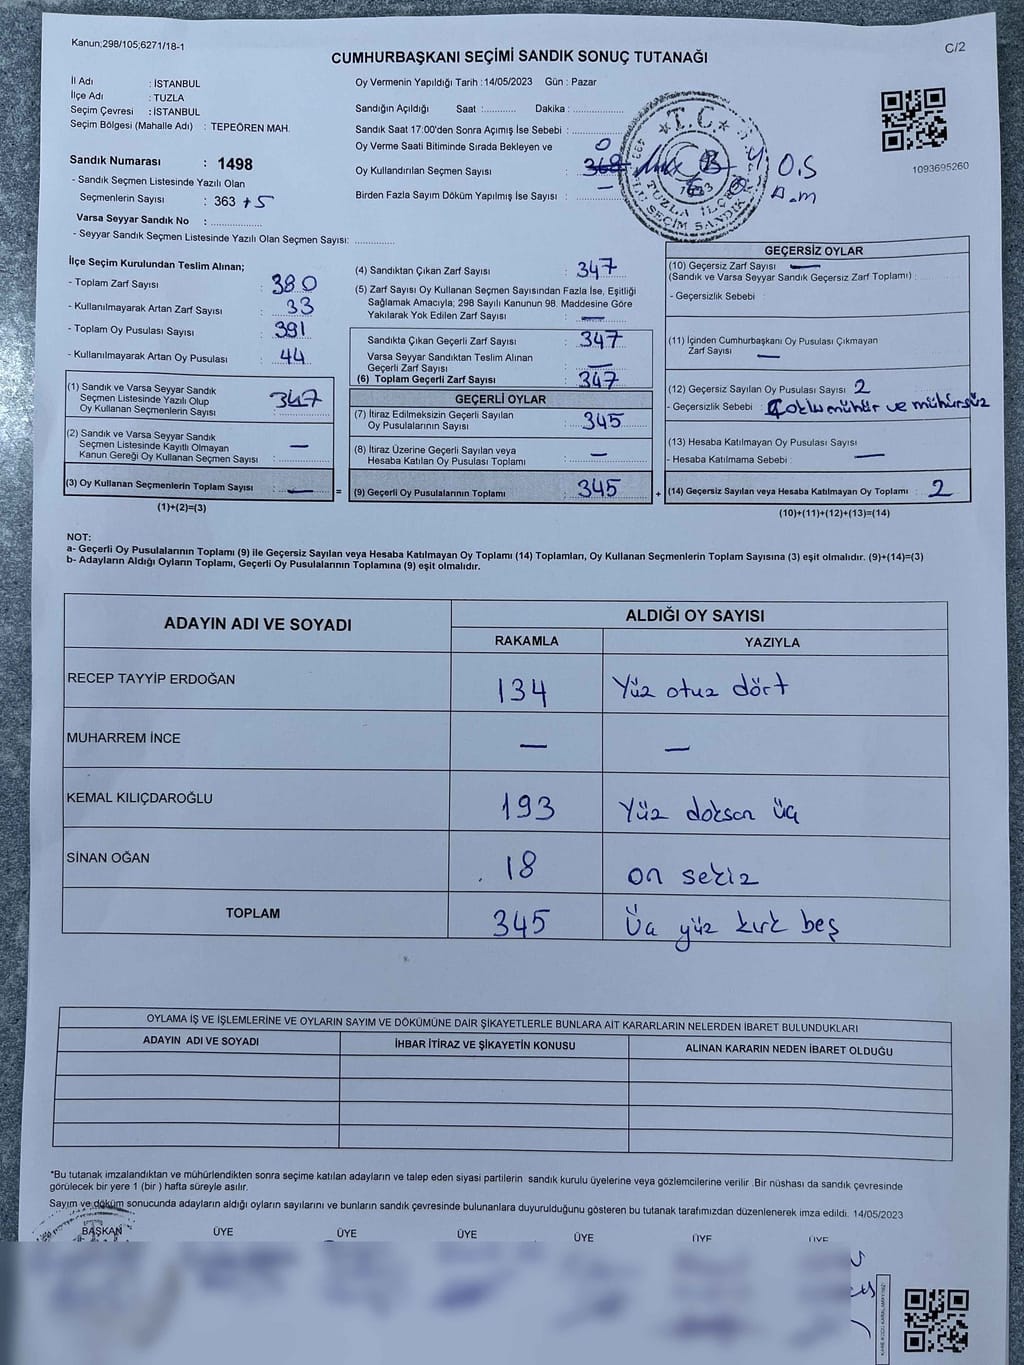 Kanun;298/105;6271/18-1
C/2
CUMHURBAŞKANI SEÇİMİ SANDIK SONUÇ TUTANAĞI
İl Adı : İSTANBUL
İlçe Adı : TUZLA
Seçim Çevresi : İSTANBUL
Seçim Bölgesi (Mahalle Adı) : TEPEÖREN MAH.
Sandık Numarası : 1498
- Sandık Seçmen Listesinde Yazılı Olan
Seçmenlerin Sayısı : 363 +5
Varsa Seyyar Sandık No : ................
- Seyyar Sandık Seçmen Listesinde Yazılı Olan Seçmen Sayısı: ............
Oy Vermenin Yapıldığı Tarih : 14/05/2023 Gün : Pazar
Sandığın Açıldığı Saat :........... Dakika : ................
Sandık Saat 17:00'den Sonra Açımış İse Sebebi : ................
Oy Verme Saati Bitiminde Sırada Bekleyen ve
Oy Kullandırılan Seçmen Sayısı : 0 368
Birden Fazla Sayım Döküm Yapılmış İse Sayısı : —
T.C.
TUZLA İLÇE
SEÇİM SANDIK
O.S
1093695260
İlçe Seçim Kurulundan Teslim Alınan;
- Toplam Zarf Sayısı : 380
- Kullanılmayarak Artan Zarf Sayısı : 33
- Toplam Oy Pusulası Sayısı : 391
- Kullanılmayarak Artan Oy Pusulası : 44
(1) Sandık ve Varsa Seyyar Sandık
Seçmen Listesinde Yazılı Olup
Oy Kullanan Seçmenlerin Sayısı : 347
(2) Sandık ve Varsa Seyyar Sandık
Seçmen Listesinde Kayıtlı Olmayan
Kanun Gereği Oy Kullanan Seçmen Sayısı : —
(3) Oy Kullanan Seçmenlerin Toplam Sayısı : — =
(1)+(2)=(3)
(4) Sandıktan Çıkan Zarf Sayısı : 347
(5) Zarf Sayısı Oy Kullanan Seçmen Sayısından Fazla İse, Eşitliği
Sağlamak Amacıyla; 298 Sayılı Kanunun 98. Maddesine Göre
Yakılarak Yok Edilen Zarf Sayısı : —
Sandıkta Çıkan Geçerli Zarf Sayısı : 347
Varsa Seyyar Sandıktan Teslim Alınan
Geçerli Zarf Sayısı : —
(6) Toplam Geçerli Zarf Sayısı : 347
GEÇERLİ OYLAR
(7) İtiraz Edilmeksizin Geçerli Sayılan
Oy Pusulalarının Sayısı : 345
(8) İtiraz Üzerine Geçerli Sayılan veya
Hesaba Katılan Oy Pusulası Toplamı : —
(9) Geçerli Oy Pusulalarının Toplamı : 345 +
GEÇERSİZ OYLAR
(10) Geçersiz Zarf Sayısı —
(Sandık ve Varsa Seyyar Sandık Geçersiz Zarf Toplamı) :
- Geçersizlik Sebebi :
(11) İçinden Cumhurbaşkanı Oy Pusulası Çıkmayan
Zarf Sayısı —
(12) Geçersiz Sayılan Oy Pusulası Sayısı 2
- Geçersizlik Sebebi : Çoklu mühür ve mühürsüz
(13) Hesaba Katılmayan Oy Pusulası Sayısı
- Hesaba Katılmama Sebebi : —
(14) Geçersiz Sayılan veya Hesaba Katılmayan Oy Toplamı : 2
(10)+(11)+(12)+(13)=(14)
NOT:
a- Geçerli Oy Pusulalarının Toplamı (9) ile Geçersiz Sayılan veya Hesaba Katılmayan Oy Toplamı (14) Toplamları, Oy Kullanan Seçmenlerin Toplam Sayısına (3) eşit olmalıdır. (9)+(14)=(3)
b- Adayların Aldığı Oyların Toplamı, Geçerli Oy Pusulalarının Toplamına (9) eşit olmalıdır.
ADAYIN ADI VE SOYADI ALDIĞI OY SAYISI
RAKAMLA YAZIYLA
RECEP TAYYİP ERDOĞAN 134 Yüz otuz dört
MUHARREM İNCE — —
KEMAL KILIÇDAROĞLU 193 Yüz doksan üç
SİNAN OĞAN 18 on sekiz
TOPLAM 345 Üç yüz kırk beş
OYLAMA İŞ VE İŞLEMLERİNE VE OYLARIN SAYIM VE DÖKÜMÜNE DAİR ŞİKAYETLERLE BUNLARA AİT KARARLARIN NELERDEN İBARET BULUNDUKLARI
ADAYIN ADI VE SOYADI İHBAR İTİRAZ VE ŞİKAYETİN KONUSU ALINAN KARARIN NEDEN İBARET OLDUĞU
*Bu tutanak imzalandıktan ve mühürlendikten sonra seçime katılan adayların ve talep eden siyasi partilerin sandık kurulu üyelerine veya gözlemcilerine verilir .Bir nüshası da sandık çevresinde
görülecek bir yere 1 (bir ) hafta süreyle asılır.
Sayım ve döküm sonucunda adayların aldığı oyların sayılarını ve bunların sandık çevresinde bulunanlara duyurulduğunu gösteren bu tutanak tarafımızdan düzenlenerek imza edildi. 14/05/2023
BAŞKAN ÜYE ÜYE ÜYE ÜYE ÜYE ÜYE